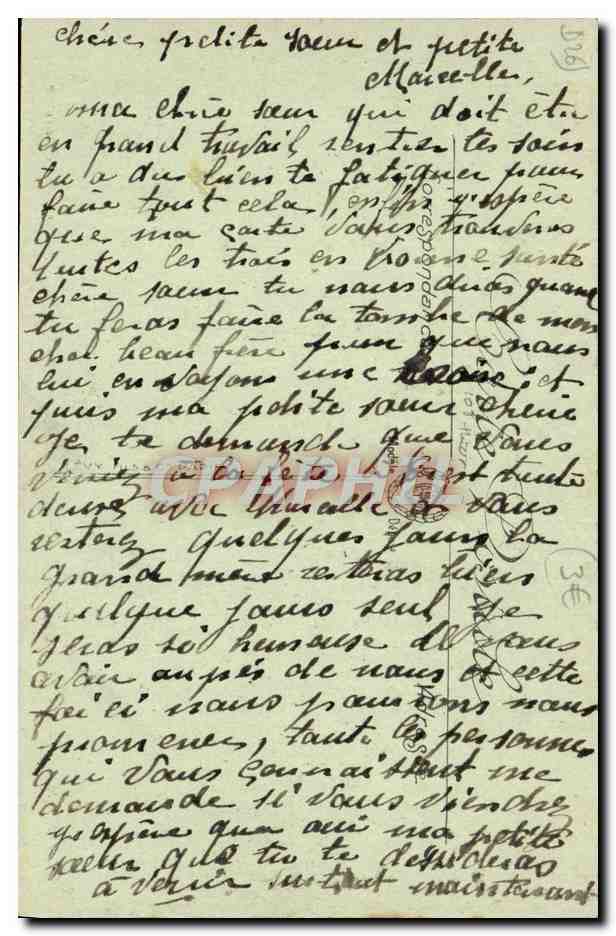 chère petite sœur et petite
Marcelle,
ma chère sœur qui doit être
en grand travail, rentrer tes foin
tu a du bien te fatiguer pour
faire tout cela, enfin j'espère
que ma carte vous trouvera
toutes les trois en bonne santé
chère sœur tu nous diras quand
tu feras faire la tombe de mon
cher beau frère pour que nous
lui envoyons une et
puis ma petite sœur cherie
je te demande que vous
venez a la fête il faut toute
deux avec Marcelle a vous
resterez quelques jours la
grand mère resteras bien
quelque jours seul, je
seras si hureuse de vous
avoir auprés de nous et cette
foi ci nous pourrons nous
promener, toute les personnes
qui vous connaissent me
demande si vous viendrez
j'espère que oui ma petite
sœur que tu te desideras
a venir surtout maintenant
Correspondance
Adresse
D26
3€
CPAPHIL